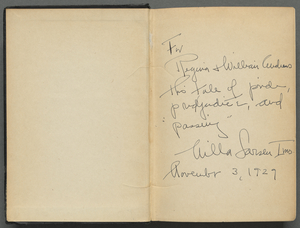 For
Regina & William Andrews
This tale of pride,
prejudice, and
"passing"
Nella Larsen Imes
November 3, 1929